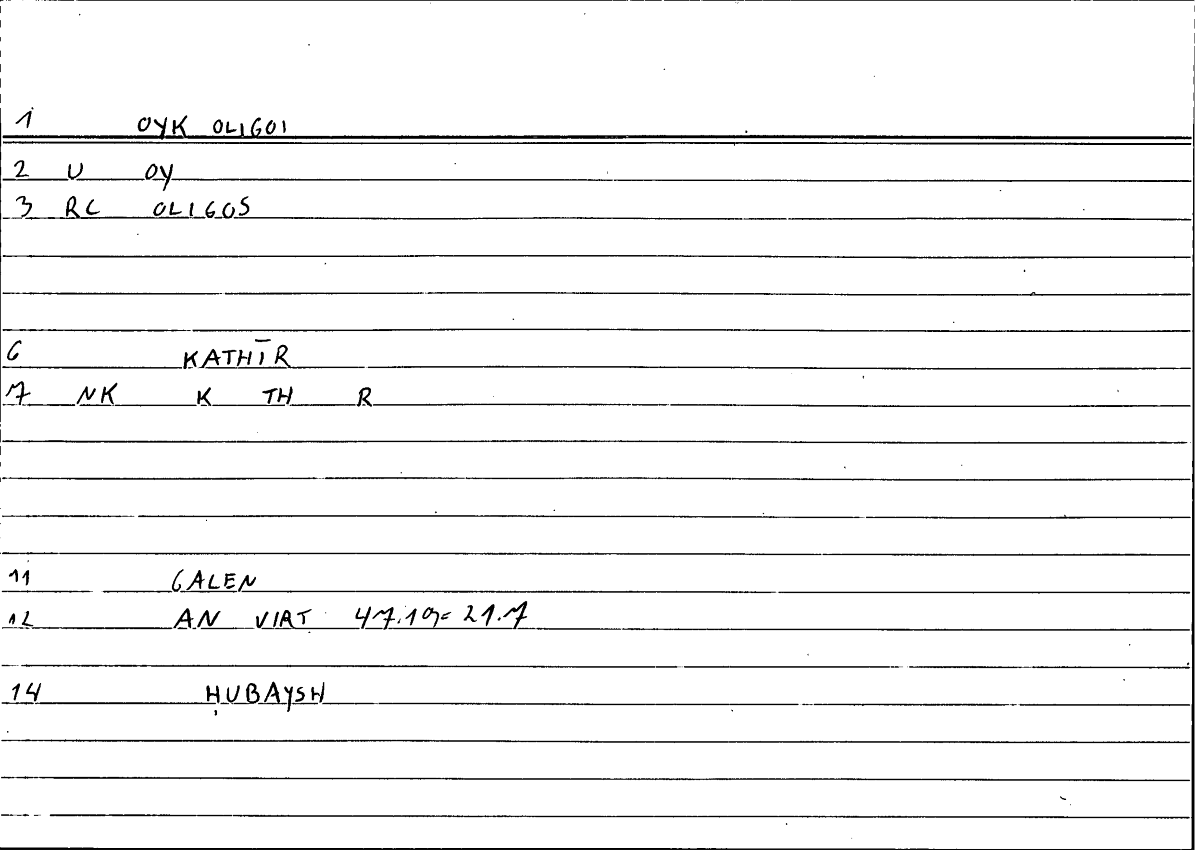 1 OYK OLIGOI
2 U OY
3 RC OLIGOS
6 KATHĪR
7 NK K TH R
11 GALEN
12 AN VIRT 47.19=21.7
14 ḤUBAYSH